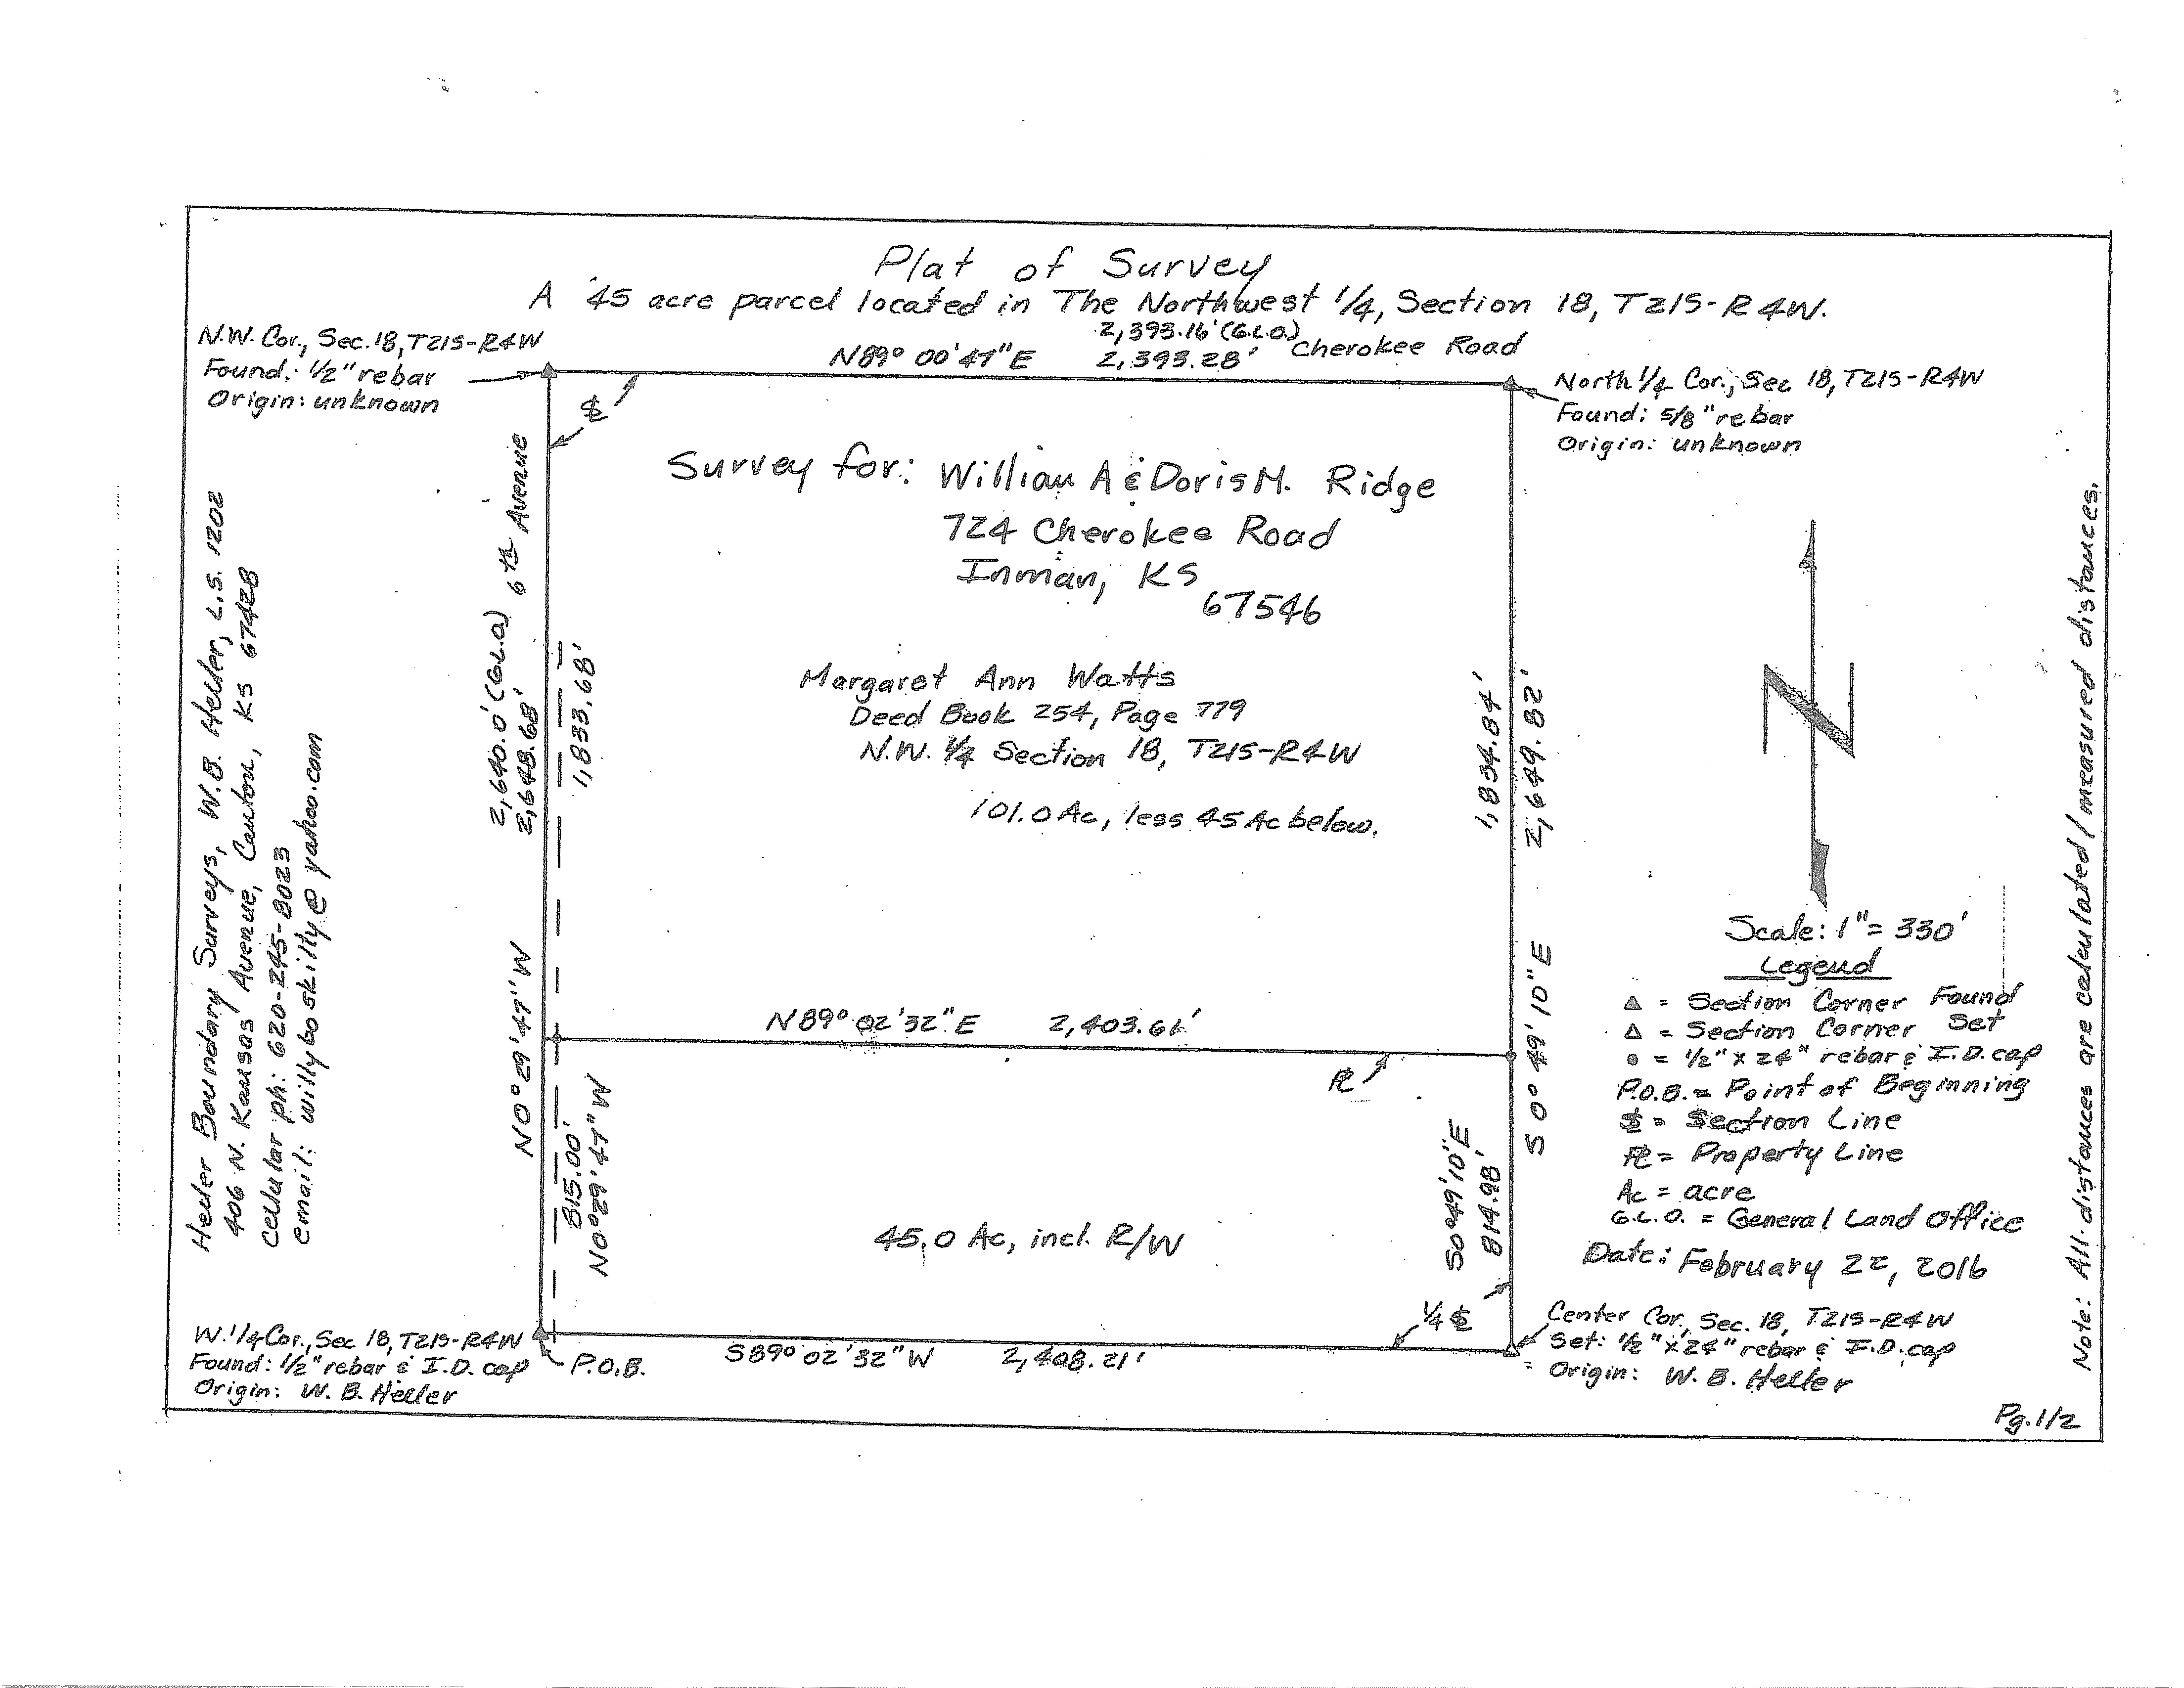 Plat of Survey
A 45 acre parcel located in The Northwest 1/4, Section 18, T21S-R4W.
N.W. Cor., Sec. 18, T21S-R4W
Found: 1/2" rebar
Origin: unknown
2,393.16' (G.L.O.)
N89° 00' 47" E 2,393.28' Cherokee Road
North 1/4 Cor., Sec 18, T21S-R4W
Found: 5/8" rebar
Origin: unknown
Survey for: William A & Doris M. Ridge
724 Cherokee Road
Inman, KS
67546
Margaret Ann Watts
Deed Book 254, Page 779
N.W. 1/4 Section 18, T21S-R4W
101.0 Ac, less 45 Ac below.
6th Avenue
2,640.0' (G.L.O.)
2,648.68'
1,833.68'
N0° 29' 47" W
1,834.84'
2,649.82'
S 0° 49' 10" E
N89° 02' 32" E 2,403.61'
PL
815.00'
N0° 29' 47" W
S0° 49' 10" E
814.98'
45.0 Ac, incl. R/W
1/4 SL
SL
W. 1/4 Cor., Sec 18, T21S-R4W
Found: 1/2" rebar & I.D. cap
Origin: W. B. Heller
P.O.B.
S89° 02' 32" W 2,408.21'
Center Cor., Sec. 18, T21S-R4W
Set: 1/2" x 24" rebar & I.D. cap
Origin: W. B. Heller
N
Scale: 1" = 330'
Legend
▲ = Section Corner Found
△ = Section Corner Set
● = 1/2" x 24" rebar & I.D. cap
P.O.B. = Point of Beginning
SL = Section Line
PL = Property Line
Ac = acre
G.L.O. = General Land Office
Date: February 22, 2016
Heller Boundary Surveys, W.B. Heller, L.S. 1202
406 N. Kansas Avenue, Canton, KS 67428
Cellular ph: 620-245-8023
email: willyboskilty@yahoo.com
Note: All distances are calculated/measured distances.
Pg. 1/2